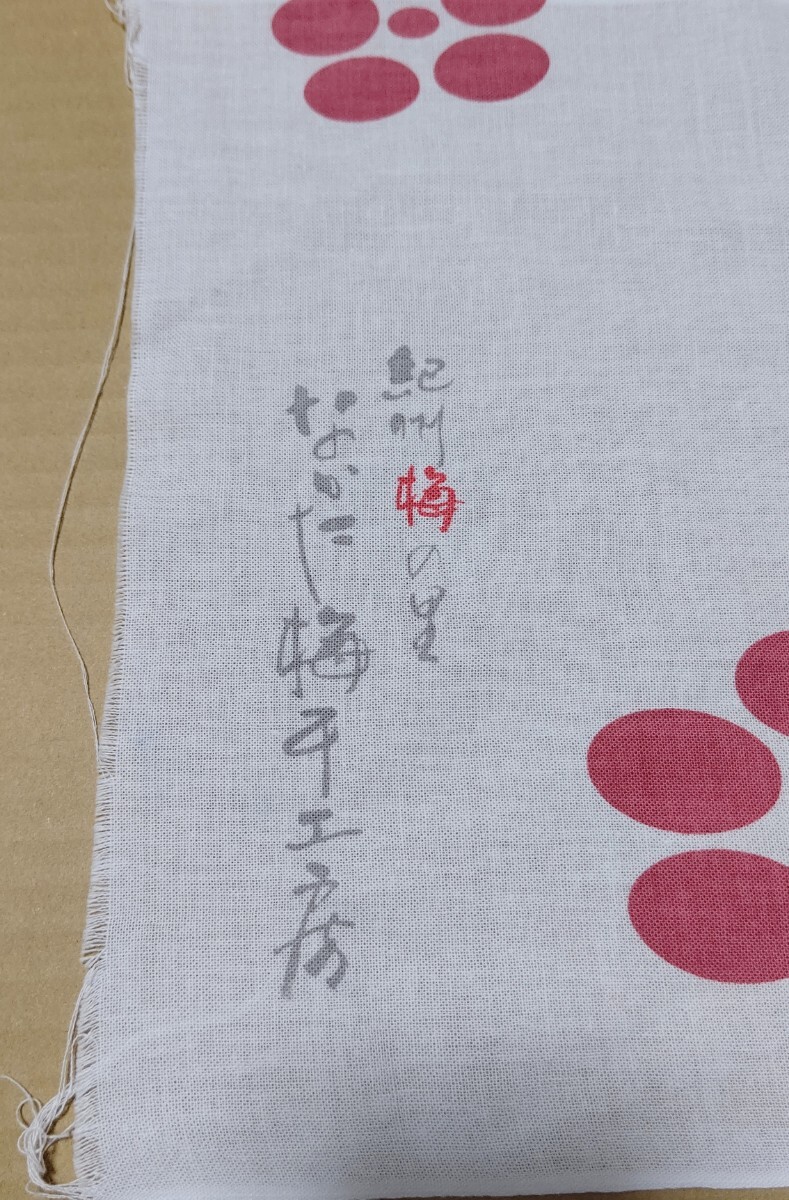 紀州梅の里
なかた梅干工房